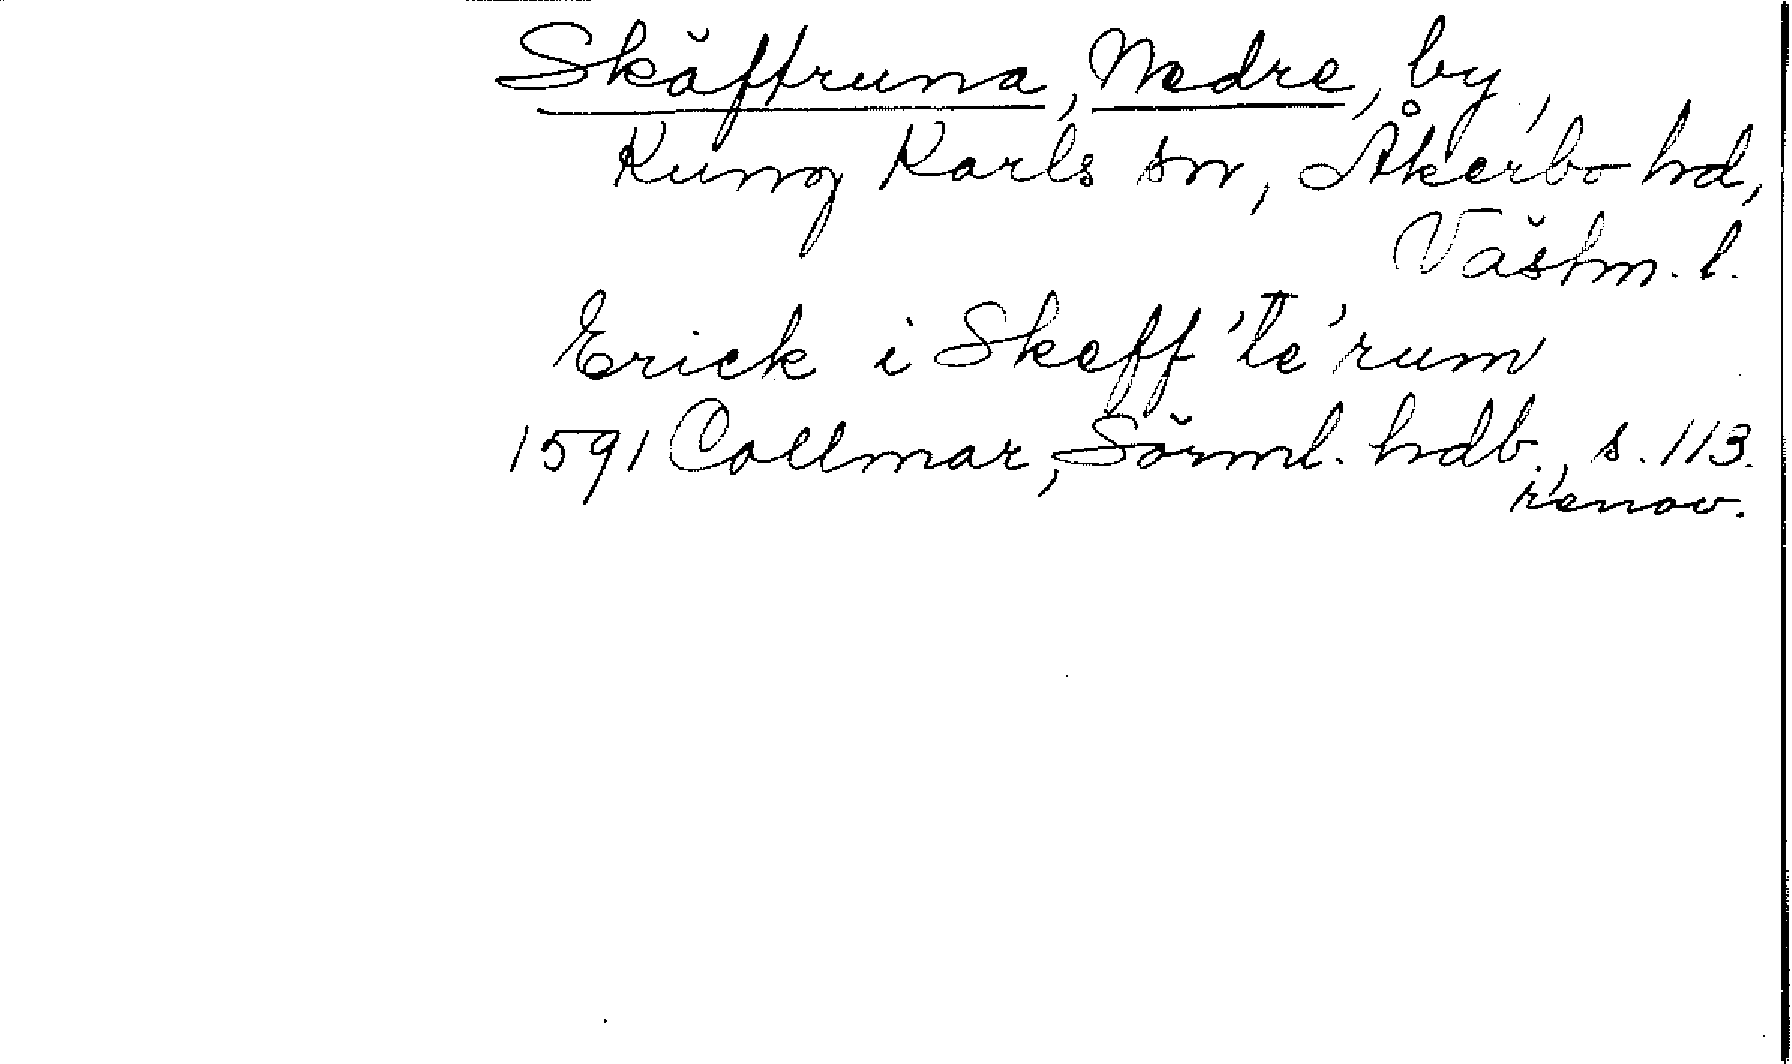 Skäftruna, Nedre, by,
Kung Karls sn, Åkerbo hd,
Västm. l.
Erick i Skeff'te'rum
1591 Collmar, Sörml. hdb., s. 113.
renov.